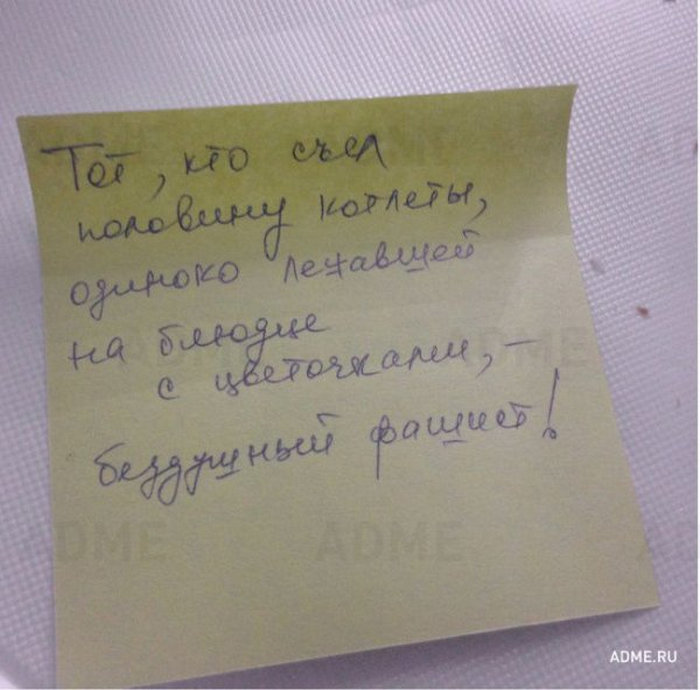 Тот, кто съел
половину котлеты,
одиноко лежавшей
на блюдце
с цветочками, –
бездушный фашист!
ADME
ADME
ADME
ADME
ADME.RU